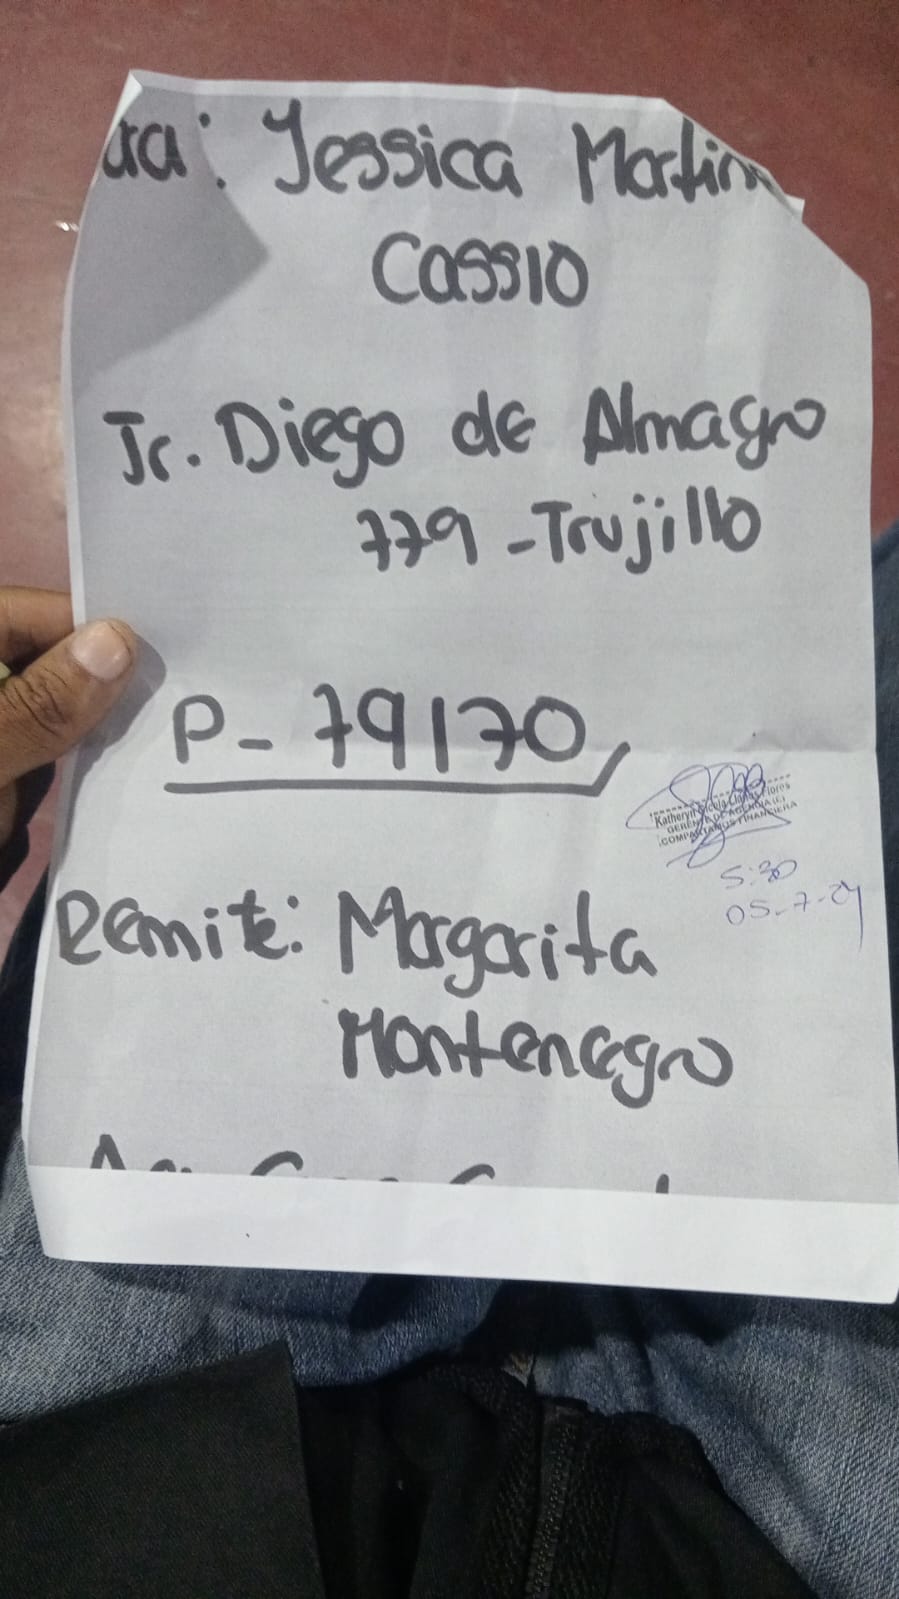 ara: Jessica Martin
Cassio
Jr. Diego de Almagro
779 - Trujillo
P- 79170
GERENTE DE AGENCIA (E)
COMPARTAMOS FINANCIERA
5:30
05-7-24
Remite: Margarita
Montenegro